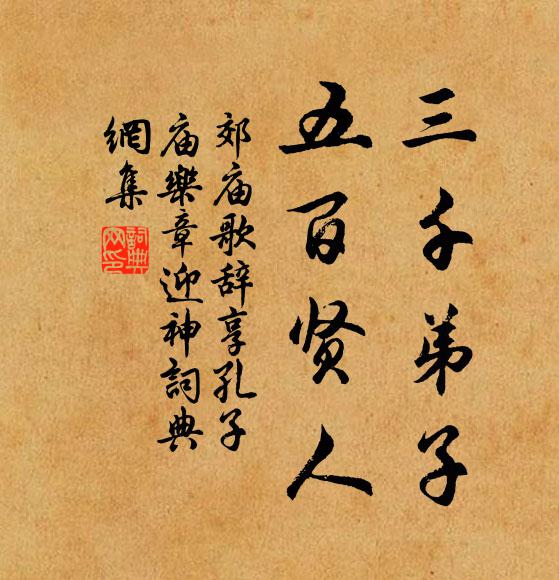 三千弟子
五百贤人
郊庙歌辞享孔子
庙樂章迎神詞典
網集
詞典
网记